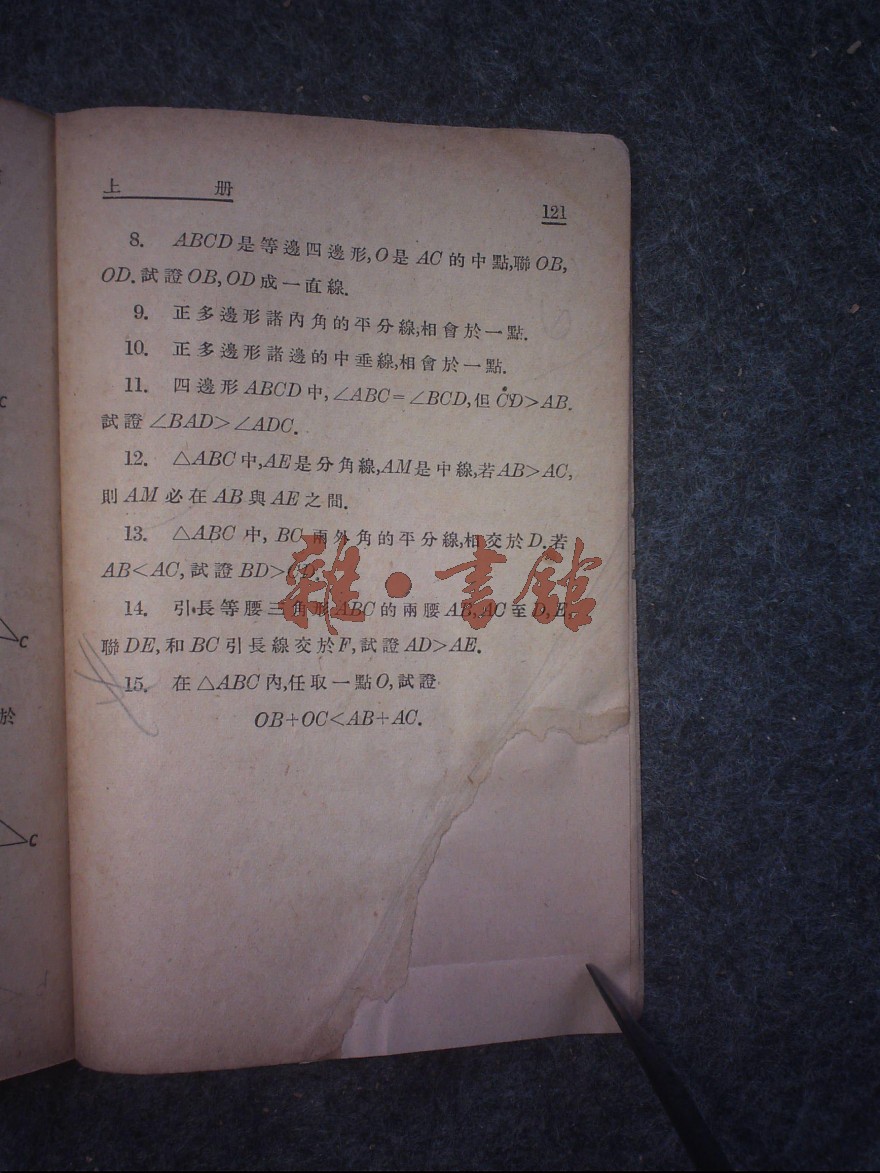 上册
121
8. ABCD是等邊四邊形,O是AC的中點,聯OB,
OD.試證OB,OD成一直線.
9. 正多邊形諸內角的平分線,相會於一點.
10. 正多邊形諸邊的中垂線,相會於一點.
11. 四邊形ABCD中,∠ABC=∠BCD,但CD>AB.
試證∠BAD>∠ADC.
12. △ABC中,AE是分角線,AM是中線,若AB>AC,
則AM必在AB與AE之間.
13. △ABC中,BC兩外角的平分線,相交於D.若
AB<AC,試證BD>CD.
14. 引長等腰三角形ABC的兩腰AB,AC至D,E,
聯DE,和BC引長線交於F,試證AD>AE.
15. 在△ABC內,任取一點O,試證
OB+OC<AB+AC.
雜·書館
C
C
於
C